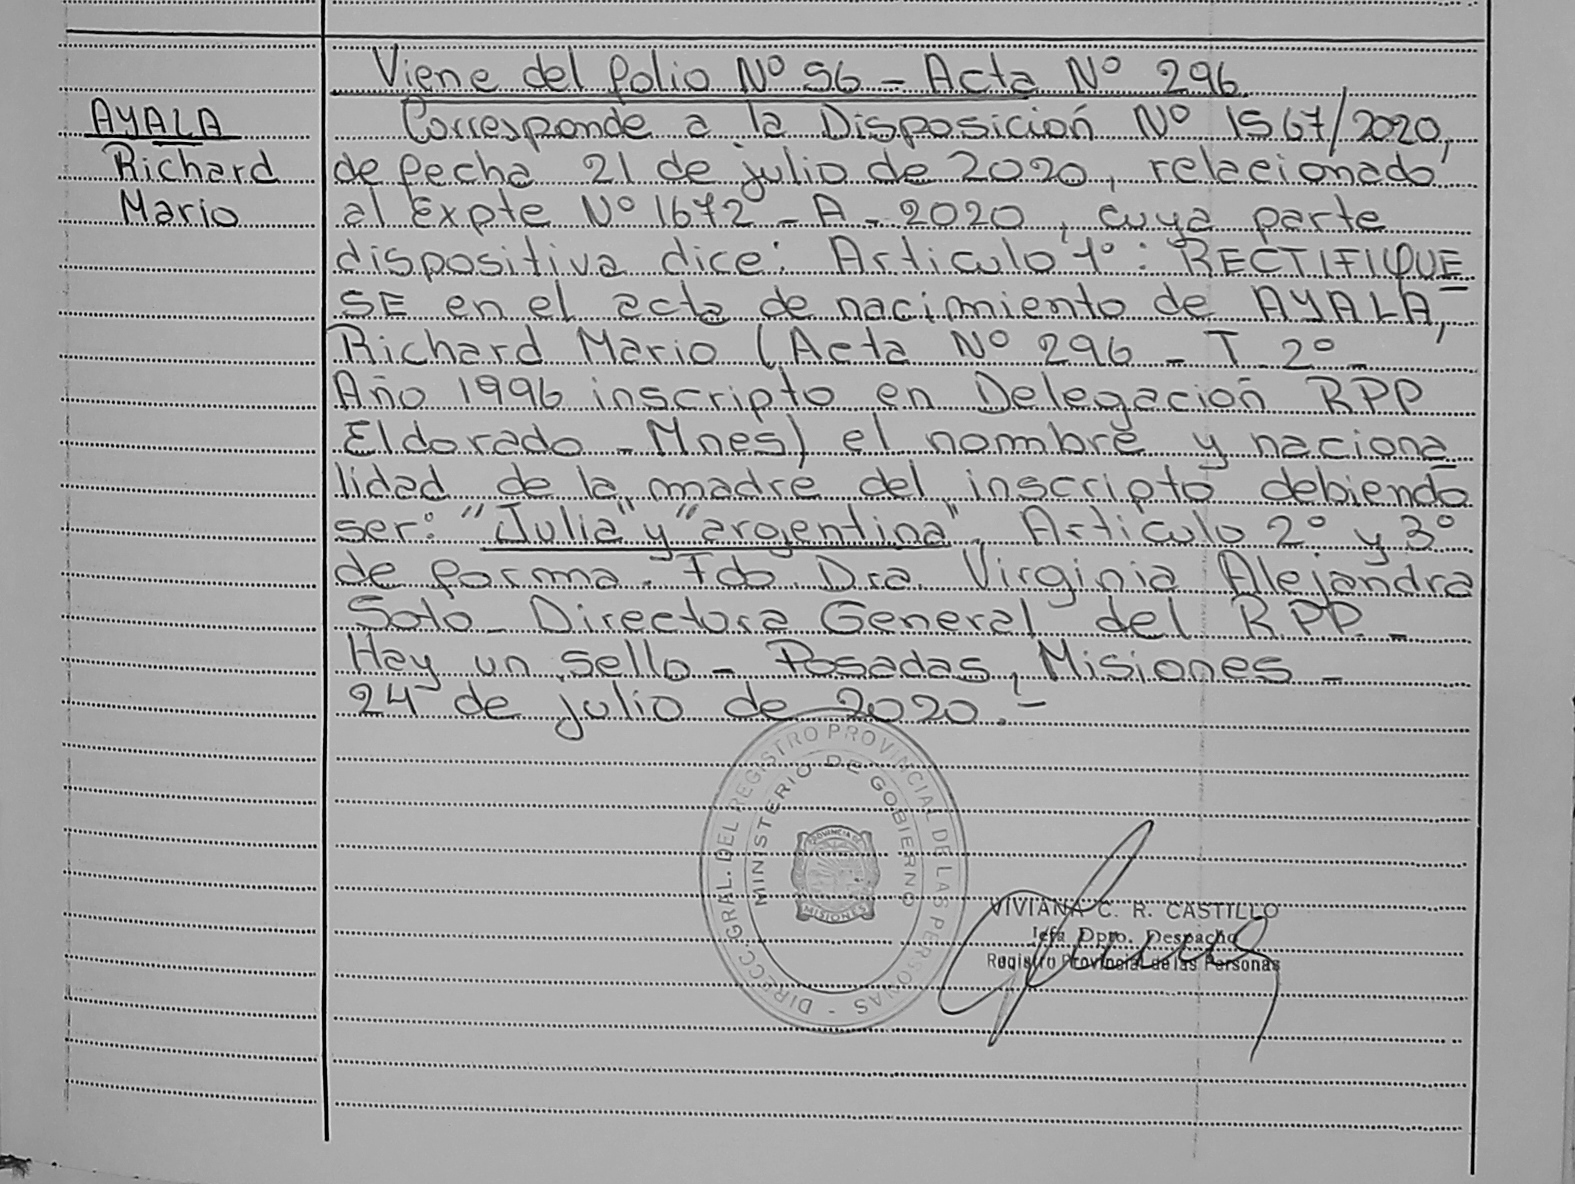 Viene del folio Nº 56 - Acta Nº 296
AYALA
Richard
Mario
Corresponde a la Disposición Nº 1567/2020,
de fecha 21 de julio de 2020, relacionado
al Expte Nº 1672 - A - 2020, cuya parte
dispositiva dice: Articulo 1º: RECTIFIQUE
SE en el acta de nacimiento de AYALA,
Richard Mario (Acta Nº 296 - T 2º -
Año 1996 inscripto en Delegación RPP
Eldorado - Mnes) el nombre y naciona
lidad de la madre del inscripto debiendo
ser: "Julia" y "argentina". Articulo 2º y 3º
de forma. Fdo Dra. Virginia Alejandra
Soto - Directora General del R.P.P. -
Hay un sello - Posadas, Misiones -
24 de julio de 2020.-
DIRECC. GRAL. DEL REGISTRO PROVINCIAL DE LAS PERSONAS -
MINISTERIO DE GOBIERNO
PROVINCIA DE
MISIONES
VIVIANA C. R. CASTILLO
Jefa Dpto. Despacho
Registro Provincial de las Personas